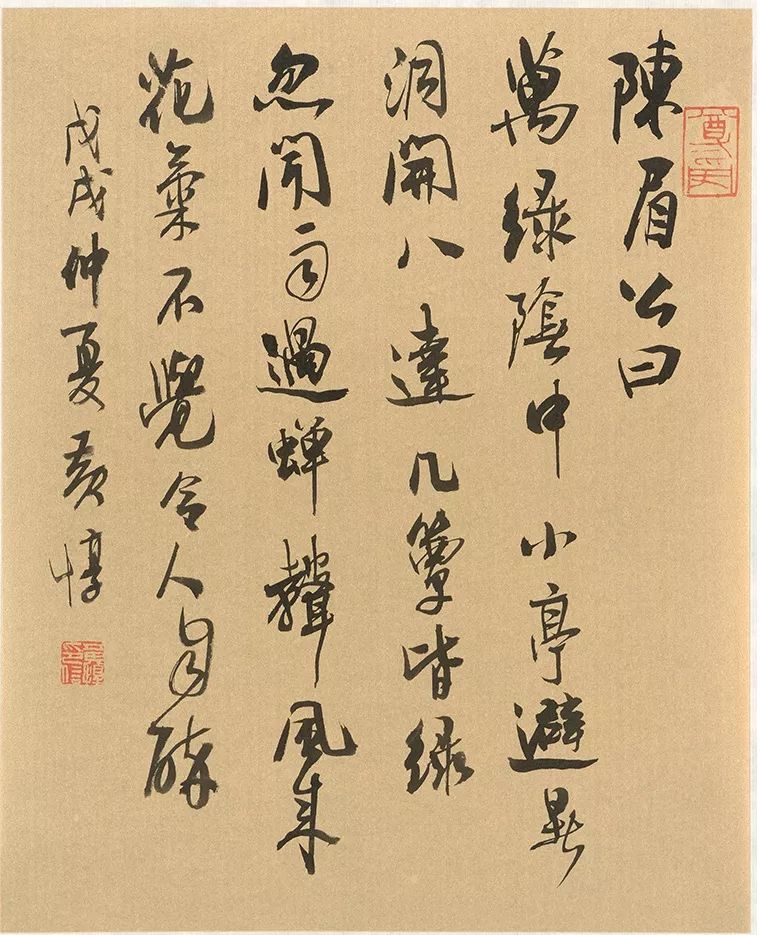 陳眉公曰
萬綠陰中小亭避暑
洞開八達几簟皆綠
忽聞雨過蟬聲風來
花氣不覺令人自醉
戊戌仲夏黃惇